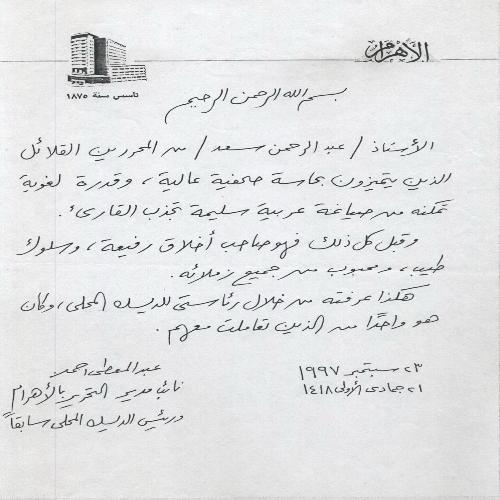 الأهرام
تأسس سنة ١٨٧٥
بسم الله الرحمن الرحيم
الأستاذ / عبد الرحمن سعد / من المحررين القلائل
الذين يتميزون بحاسة صحفية عالية ، وقدرة لغوية
تمكنه من صياغة عربية سليمة تجذب القارئ .
وقبل كل ذلك فهو صاحب أخلاق رفيعة ، وسلوك
طيب ، ومحبوب من جميع زملائه .
هكذا عرفته من خلال رئاستي للديسك المحلى ، وكان
هو واحدًا من الذين تعاملت معهم .
٢٣ سبتمبر ١٩٩٧
٢١ جمادى الأولى ١٤١٨
عبد المعطى أحمد
نائب مدير التحرير بالأهرام
ورئيس الديسك المحلى سابقاً